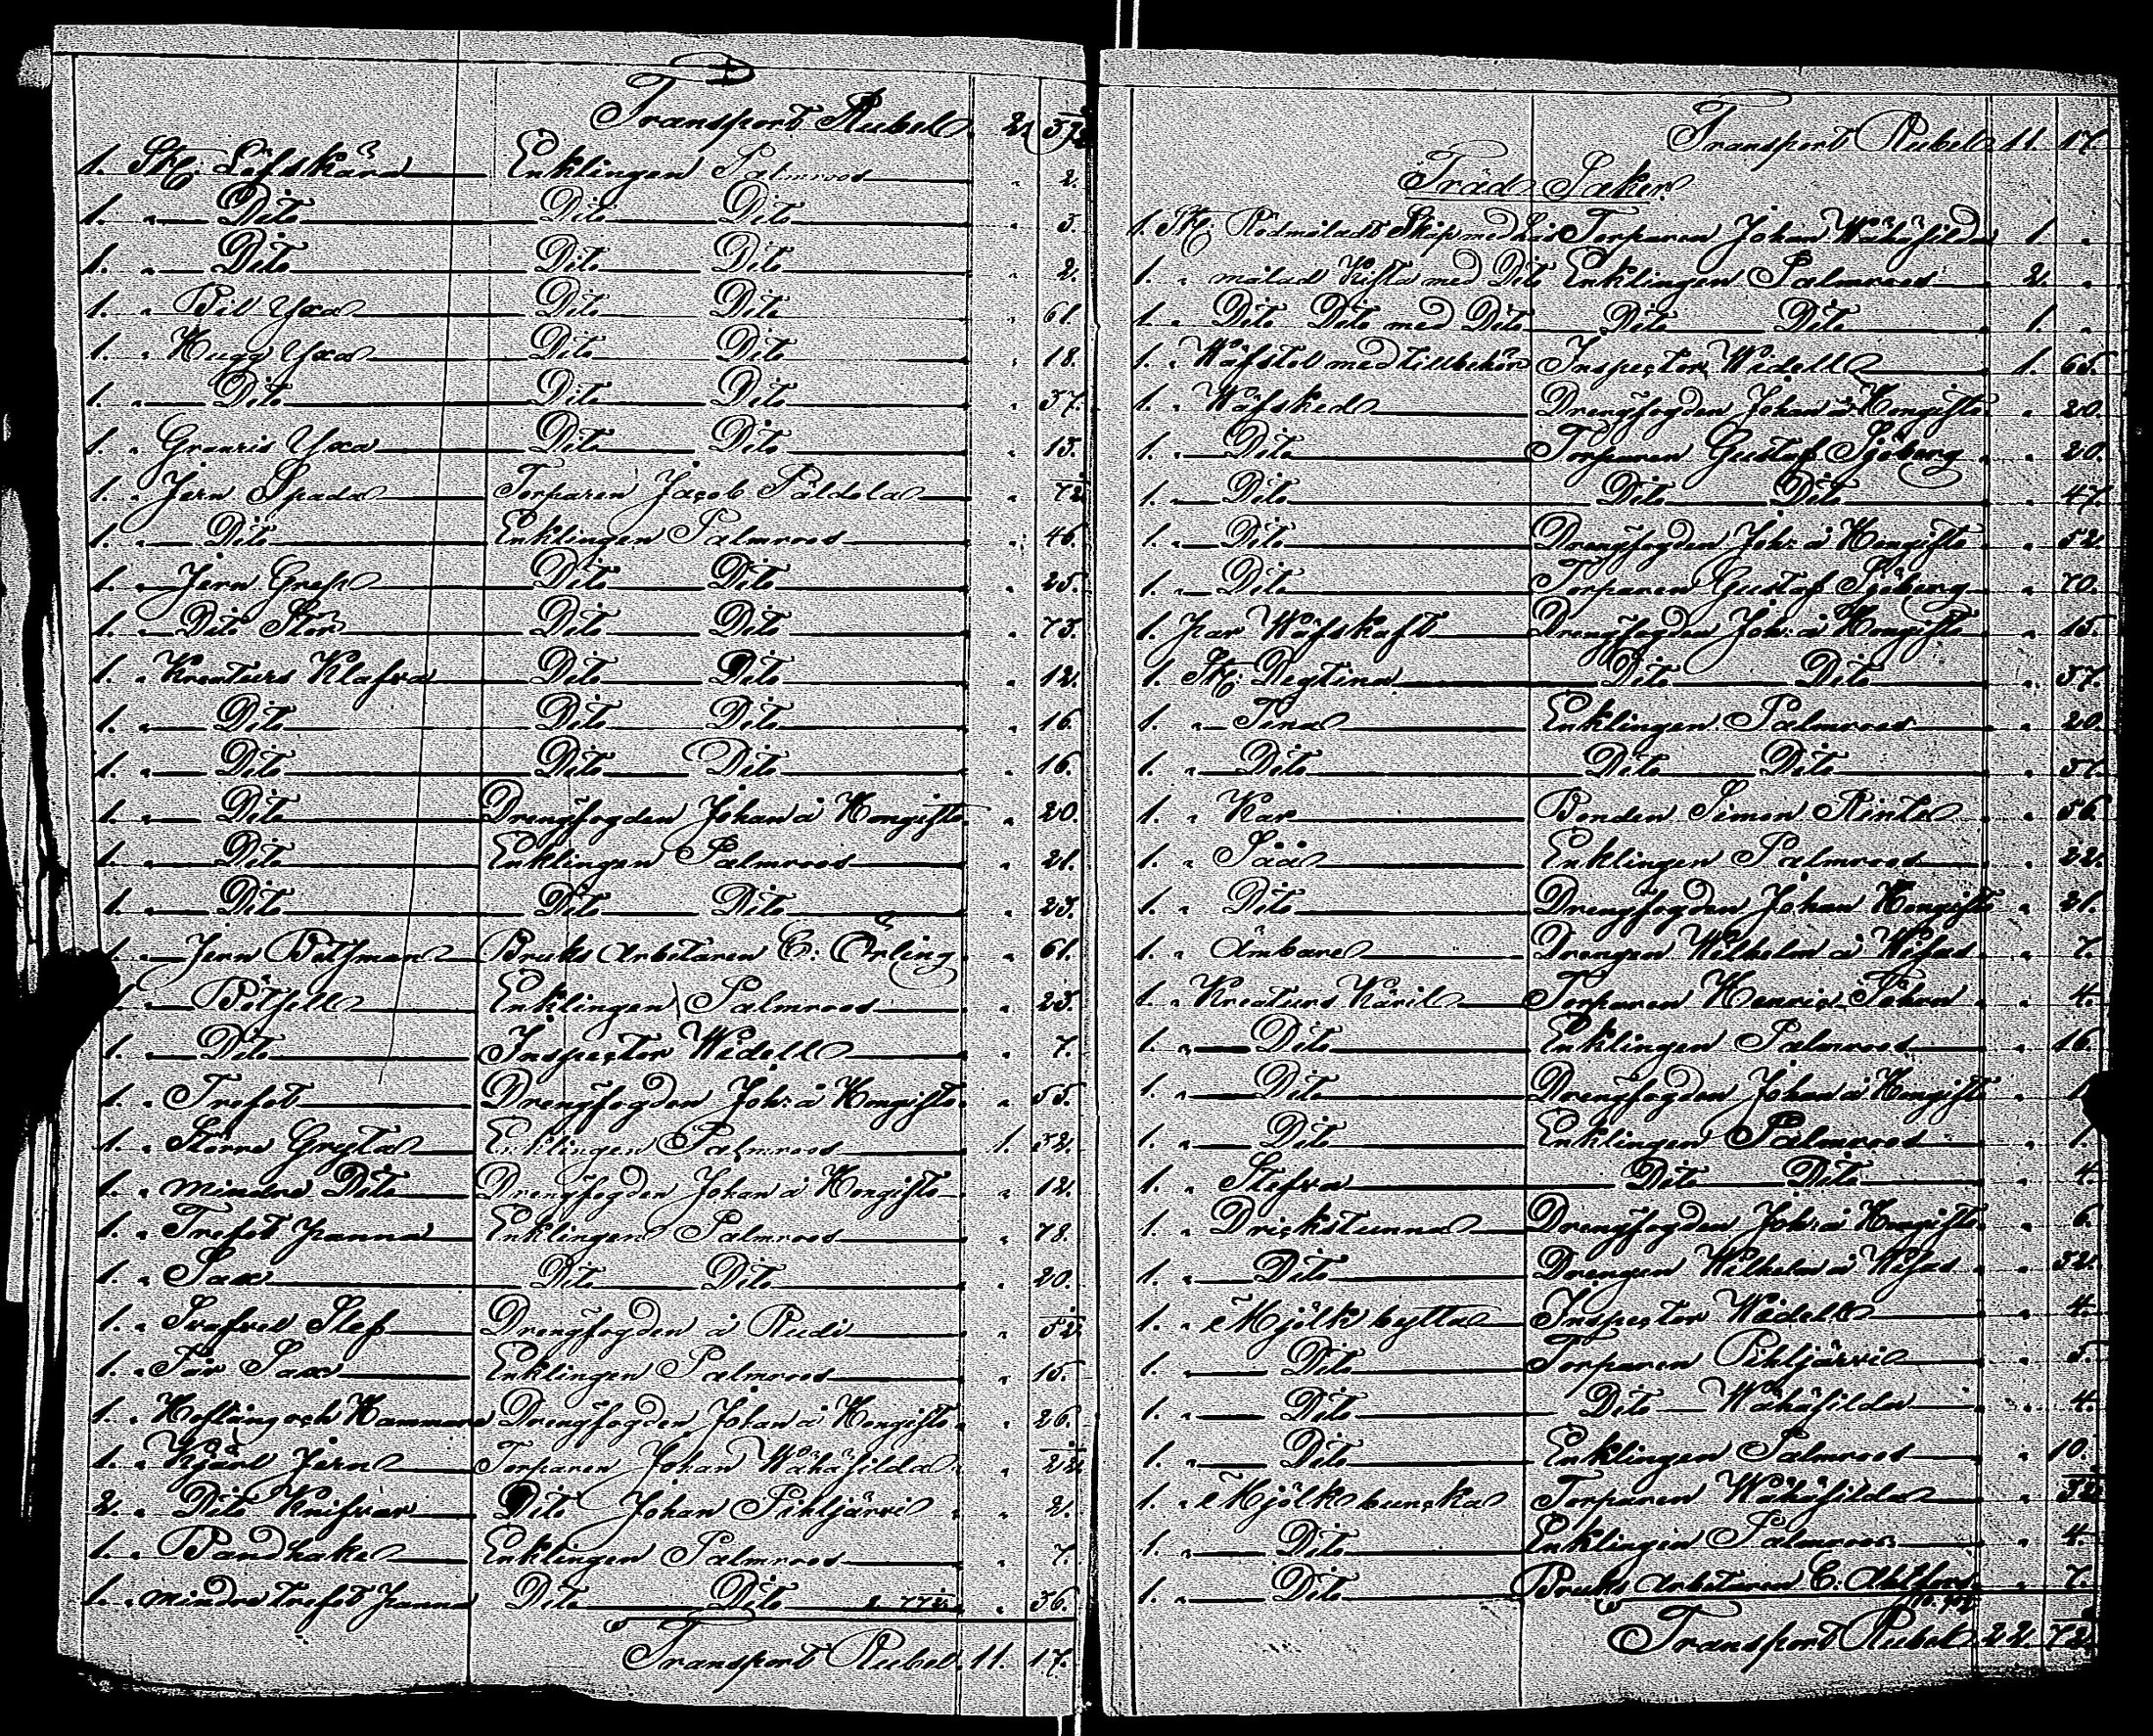 Transport Rubel. 2. 37.
1. St. Löfskära Enklingen Palmroos " 2.
1. " Dito Dito Dito " 5.
1. " Dito Dito Dito " 2.
1. " Bil Yxa Dito Dito " 61.
1. " Hugg Yxa Dito Dito " 18.
1. " Dito Dito Dito " 37.
1. " Granris Yxa Dito Dito " 13.
1. " Jern Spada Torparen Jacob Päldola " 72
1. " Dito Enklingen Palmroos " 46.
1. " Jern Grep Dito Dito " 25.
1. " Dito Stör Dito Dito " 75.
1. " Kreaturs Klafva Dito Dito " 12.
1. " Dito Dito Dito " 16.
1. " Dito Dito Dito " 16.
1. " Dito Drengfogden Johan å Hongisto " 20.
1. " Dito Enklingen Palmroos " 21.
1. " Dito Dito Dito " 23.
1. " Jern Betsman Bruks Arbetaren C: Örling " 61.
" Bötfell Enklingen Palmroos " 23.
1. " Dito Inspector Widell " 7.
1. " Trefot Drengfogden Joh: å Hongisto " 55.
1. " Större Gryta Enklingen Palmroos 1. 32.
1. " mindre Dito Drengfogden Johan å Hongisto " 12.
1. " Trefot panna Enklingen Palmroos " 78.
1. " Sax Dito Dito " 20.
1. " Slef Drengfogden å Rudi " 52
1. " Får Sax Enklingen Palmroos " 15.
1. " Hoftång och Hammare Drengfogden Johan å Hongisto " 26.
1. " Kjärl Jern Torparen Johan Wähäsilda "
2. " Dito Knifvar Dito Johan Pihljärvi " 2.
1. " Bandhake Enklingen Palmroos " 7.
1. " mindre trefot panna Dito Dito " 36.
Transport Rubel. 11. 17.
Transport Rubel 11. 17.
Träd Saker
1. St. Rödmåladt Skåp med Lås Torparen Johan Wähäsilda 1. "
1. " målad Kista med Dito Enklingen Palmroos 2. "
1. " Dito Dito med Dito Dito Dito 1. "
1. " Wäfstol med tillbehör Inspector Widell 1. 65.
1. " Wäfsked Drengfogden Johan å Hongisto " 20.
1. " Dito Torparen Gustaf Sjöberg " 20.
1. " Dito Dito Dito " 47.
1. " Dito Drengfogden Joh: å Hongisto " 52.
1. " Dito Torparen Gustaf Sjöberg " 70.
1. par Wäfskaft Drengfogden Joh: å Hongisto " 15.
1. St. Degtina Dito Dito " 57.
1. " Tina Enklingen Palmroos " 20.
1. " Dito Dito Dito " 51.
1. " Kar Bonden Simon Rinta " 56
1. " Såå Enklingen Palmroos " 22.
1. " Dito Drengfogden Johan Hongisto " 21.
1. " Ämbare Drengen Wilhelm å " 7.
1. " Kreaturs Käril Torparen Henric Johan " 4.
1. " Dito Enklingen Palmroos " 16.
1. " Dito Drengfogden Johan å Hongisto " 1
1. " Dito Enklingen Palmroos " 1.
1. " Stefva Dito Dito " 4.
1. " Drickstunna Drengfogden Joh: å Hongisto " 6.
1. " Dito Drengen Wilhelm å " 32.
1. " Mjölk bytta Inspector Widell " 4.
1. " Dito Torparen Pihljärvi " 5.
1. " Dito Dito Wähäsilda " 4.
1. " Dito Enklingen Palmroos " 10.
1. " Mjölk buncka Torparen Wähäsilda "
1. " Dito Enklingen Palmroos " 4.
1. " Dito Bruks Arbetaren C. Ahlfors " 7.
Transport Rubel 22. 72